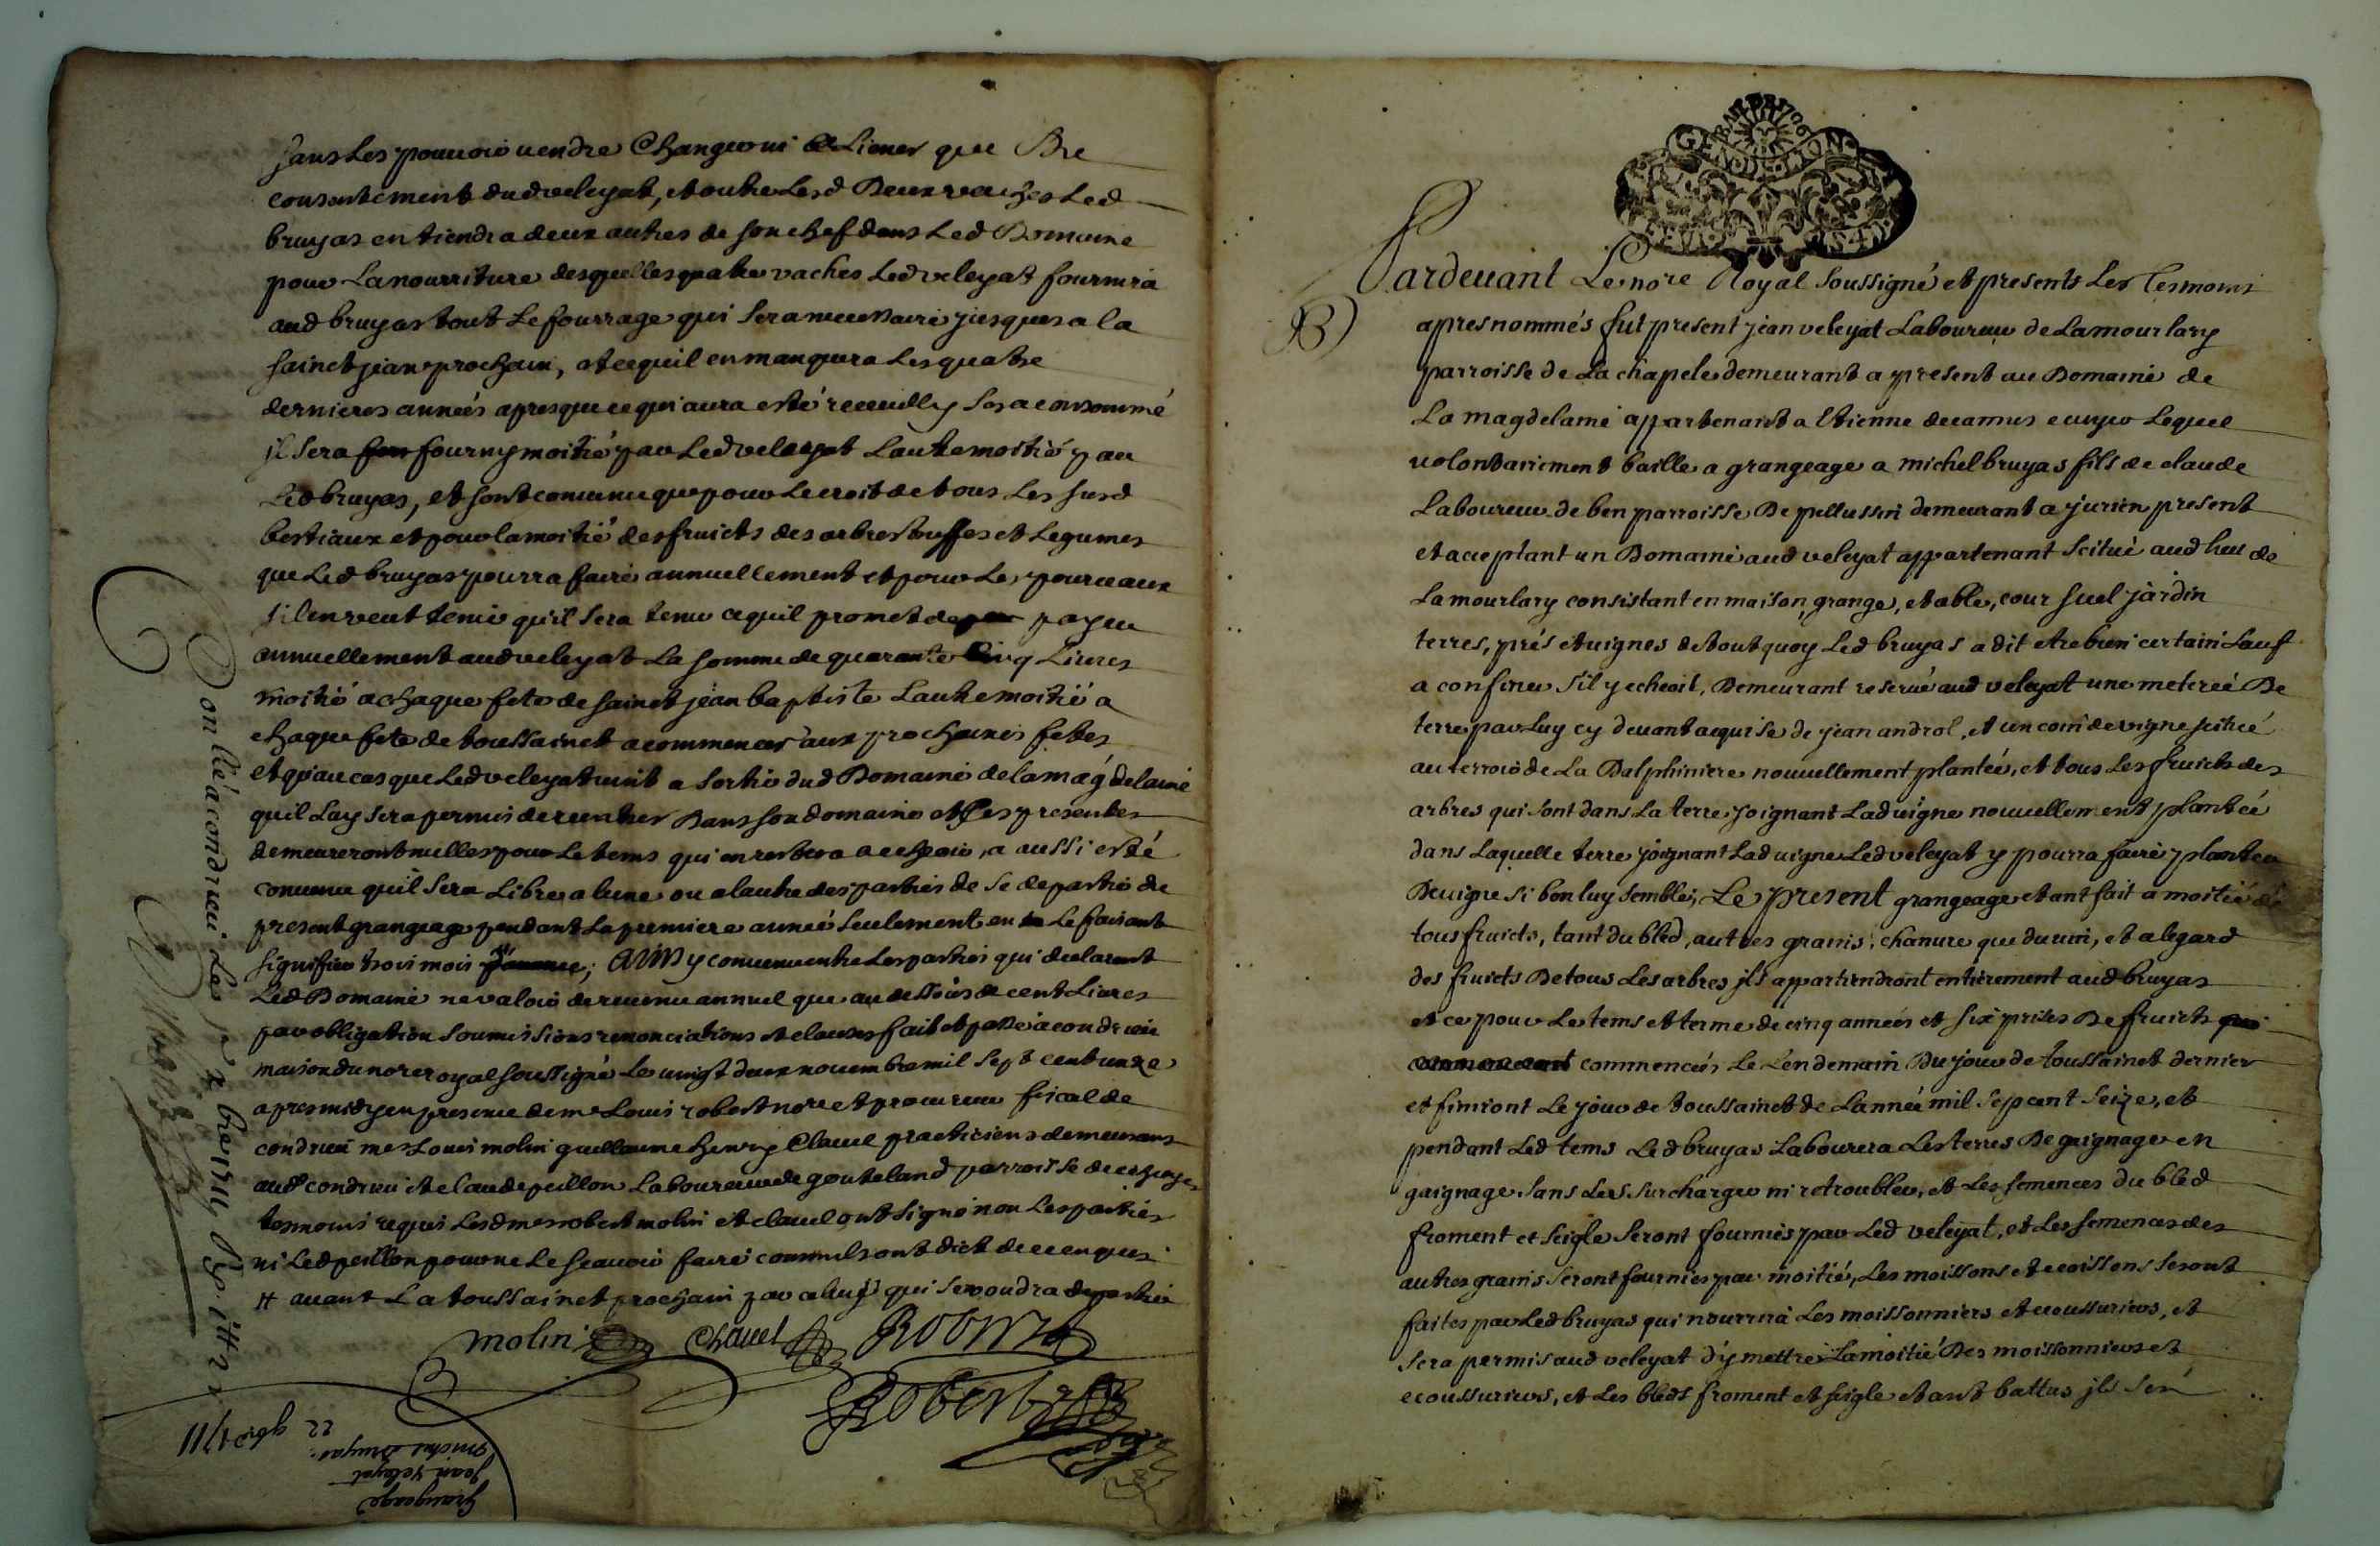 sans les pouvoir vendre changer ni aliener que du
consentement dud veleyat, et outre lesd deux vaches led
bruyas en tiendra deux autres de son chef dans led Domaine
pour la nourriture desquelles quatre vaches led veleyat fournira
aud bruyas tout le fourrage qui sera necessaire jusques a la
sainct jean prochain, et ce quil en manquera les quatre
dernieres années apres que ce qui aura esté receuilly sera consommé
il sera fourny moitié par led veleyat lautre moitié par
led bruyas, et sont convenu que pour le croit de tous les susd
bestiaux et pour la moitié des fruicts des arbres touffes et legumes
que led bruyas pourra faire annuellement et pour les pourceaux
sil en veut tenir qu'il sera tenu ce quil promet de payer
annuellement aud veleyat la somme de quarante cinq livres
moitié a chaque fete de sainct jean baptiste lautre moitié a
chaque fete de toussainct a commencer aux prochaines fetes
et qu'au cas que led veleyat vint a sortir dud Domaine de la magdelaine
quil luy sera permis de rentrer dans son domaine et les presentes
demeureront nulles pour le tems qui en restera a echeoir, a aussi esté
convenu quil sera libre a lune ou a lautre des parties de se departir du
present grangeage pendant la premiere année seulement en le faisant
signifier trois mois; Ainsy convenu entre les parties qui declarent
led Domaine ne valoir de revenu annuel que au dessous de cent livres
par obligation soumissions renonciations et clauses fait et passé a condrieu
maison du nore royal soussigné le vingt deux novembre mil sept cent unze
apres midy en presence de me Louis robert nore et procureur fiscal de
condrieu mes Louis molin guillaume henry Clavel practiciens demeurans
aud condrieu et claude peillon laboureur de gouteland parroisse de
tesmoins requis lesd mes robert molin et clavel ont signé non les parties
ni led peillon pour ne le scavoir faire comme ils ont dict de ce enquis
# avant la toussainct prochain par celuy qui se voudra departir
molin Clavel Robert
Robert
Con llé a condrieu les
22 9bre 1711
Grangeage
jean veleyat
michel bruyas
GN DE LYON
Pardevant Le nore Royal soussigné et presents les Tesmoins
apres nommés fut present jean veleyat Laboureur de Lamourlary
parroisse de La chapele demeurant a present au Domaine de
La magdelaine appartenant a Etienne decamus ecuyer Lequel
volontairement baille a grangeage a michel bruyas fils de claude
Laboureur de ben parroisse De pellussin demeurant a jurien present
et acceptant un Domaine aud veleyat appartenant scitué aud lieu de
Lamourlary consistant en maison, grange, etable, cour suel jardin
terres, prés et vignes de tout quoy Led bruyas a dit etre bien certain sauf
a confiner s'il y echeoit, Demeurant reservé aud veleyat une meterée De
terre par Luy cy devant acquise de jean androl, et un coin de vigne scitué
au terroir de La Dalphiniere nouvellement plantée, et tous Les fruicts des
arbres qui sont dans La terre joignant Lad vigne nouvellement plantée
dans Laquelle terre joignant Lad vigne Led veleyat y pourra faire planter
De vigne si bon luy semble; Le present grangeage etant fait a moitié de
tous fruicts, tant du bled, autres grains, chanvre que du vin, et a legard
des fruicts De tous Les arbres ils appartiendront entierement aud bruyas
et ce pour Le tems et terme de cinq années et six prises De fruicts qui
commenceront commencées Le Lendemain Du jour de toussainct dernier
et finiront Le jour de toussainct de Lannée mil sept cent seize, et
pendant Led tems Led bruyas Labourera Les terres De gaignage en
gaignage sans Les surcharger ni retroubler, et Les semences du bled
froment et seigle seront fournies par Led veleyat, et Les semences des
autres grains seront fournies par moitié, Les moissons et ecoissons seront
faites par Led bruyas qui nourrira Les moissonniers et ecoussuriers, et
sera permis aud veleyat d'y mettre La moitié Des moissonniers et
ecoussuriers, et Les bleds froment et seigle etant battus ils seront